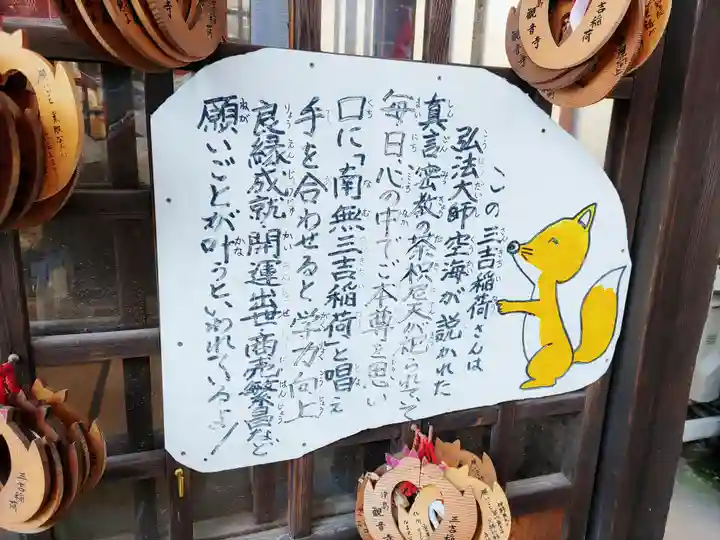 この三吉稲荷さんは
弘法大師空海が説かれた
真言密教の荼枳尼天が祀られていて
毎日、心の中でご本尊を思い
口に「南無三吉稲荷」と唱え
手を合わせると学力向上
良縁成就・開運出世・商売繁昌など
願いごとが叶うといわれているよ!
三吉稲荷
観音寺
三吉稲荷
観音寺
三吉稲荷
観音寺
三吉稲荷